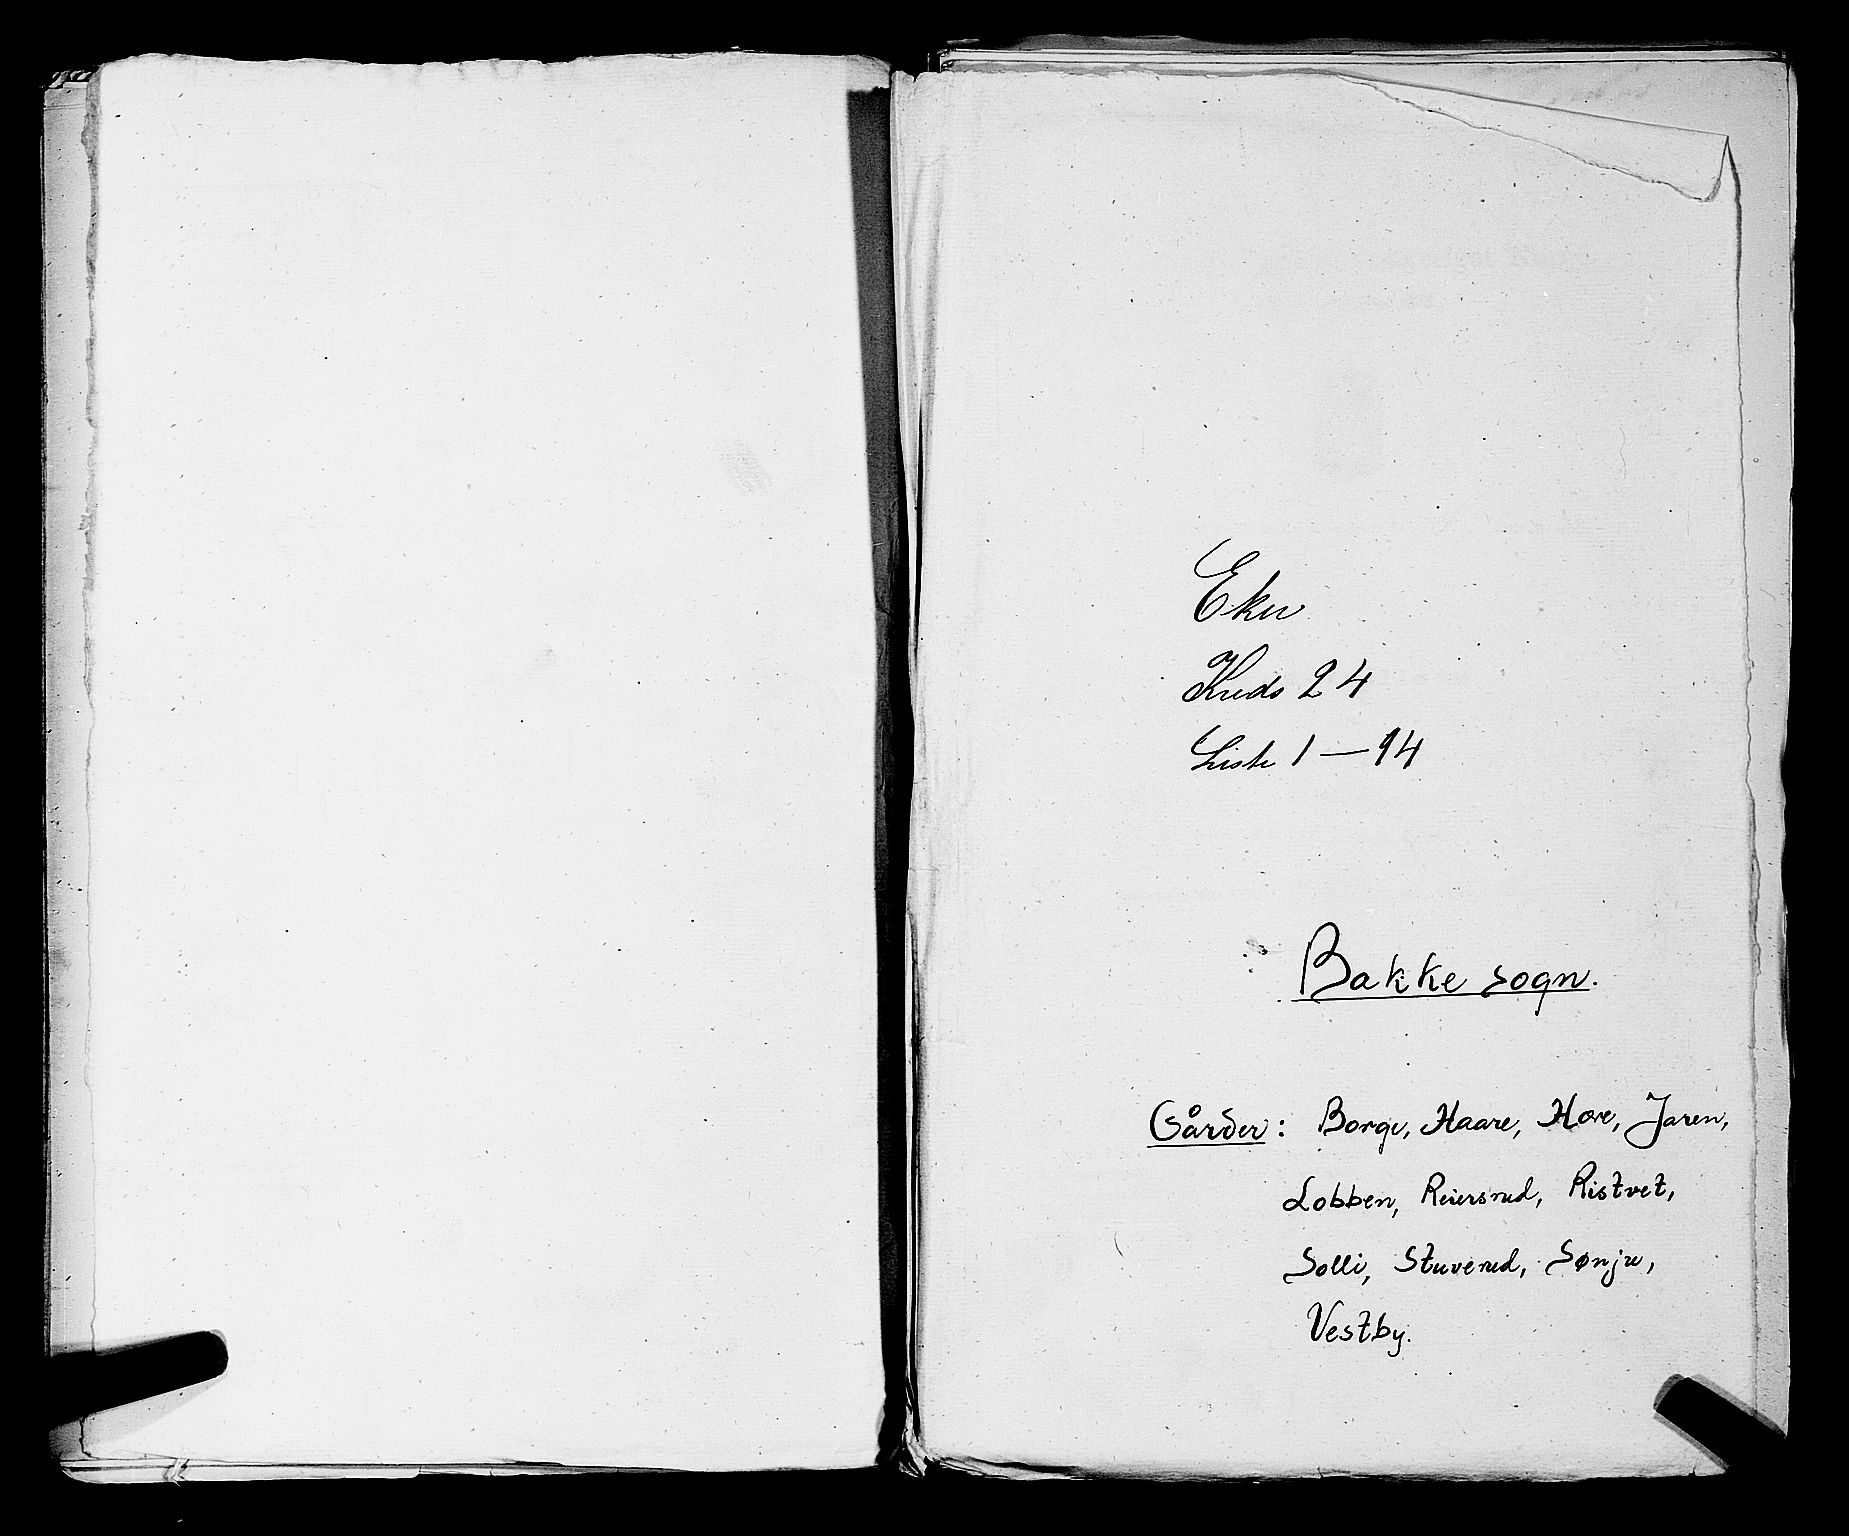 Eker
Kreds 24
Liste 1 — 94
Bakke sogn.
Gårder: Borge, Haare, Hære, Jaren,
Lobben, Reiersrud, Ristvet,
Solli, Stuverud, Sønju,
Vestby.